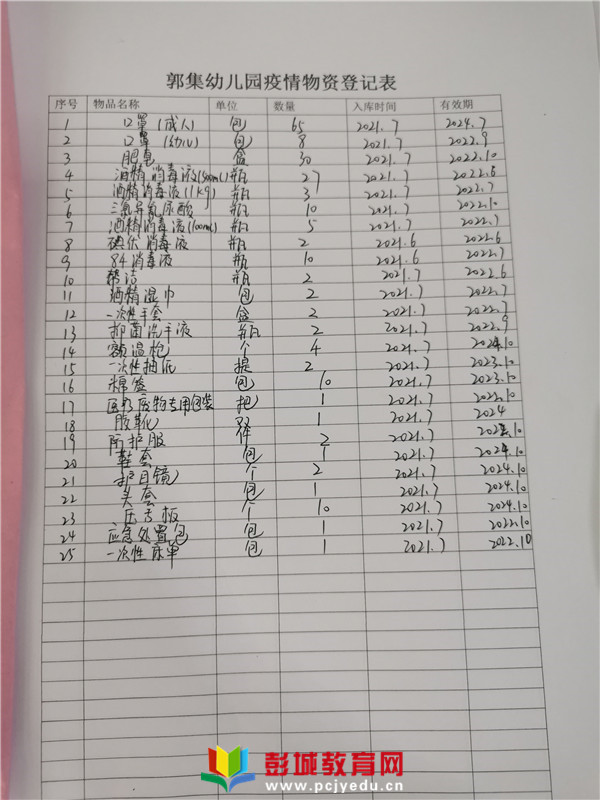 郭集幼儿园疫情物资登记表
序号 物品名称 单位 数量 入库时间 有效期
1 口罩(成人) 包 65 2021.7 2024.7
2 口罩(幼儿) 包 8 2021.7 2022.9
3 肥皂 盒 30 2021.7 2022.10
4 酒精消毒液(500ml) 瓶 27 2021.7 2022.6
5 酒精消毒液(1kg) 瓶 3 2021.7 2022.7
6 三氯异氰尿酸 瓶 10 2021.7 2022.10
7 酒精消毒液(100ml) 瓶 5 2021.7 2022.7
8 碘伏消毒液 瓶 2 2021.6 2022.6
9 84消毒液 瓶 10 2021.6 2022.7
10 洁 瓶 2 2021.7 2022.6
11 酒精湿巾 包 2 2021.7 2022.7
12 一次性手套 盒 2 2021.7 2022.7
13 抑菌洗手液 瓶 2 2021.7 2022.9
14 额温枪 个 4 2021.7 10
15 一次性抽纸 提 2 2021.7 2023.10
16 棉签 包 10 2021.7 2023.10
17 医疗废物专用包装 把 1 2021.7 10
18 胶靴 双 1 2021.7 2024
19 防护服 2 2021.7 10
20 鞋套 包 1 2021.7 10
21 护目镜 个 2 2021.7 2024.10
22 头套 包 1 2021.7 2024.10
23 压舌板 个 10 2021.7 2024.10
24 应急处置包 包 1 2021.7 2022.10
25 一次性床单 包 1 2021.7 2022.10
彭城教育网
www.pcjyedu.cn